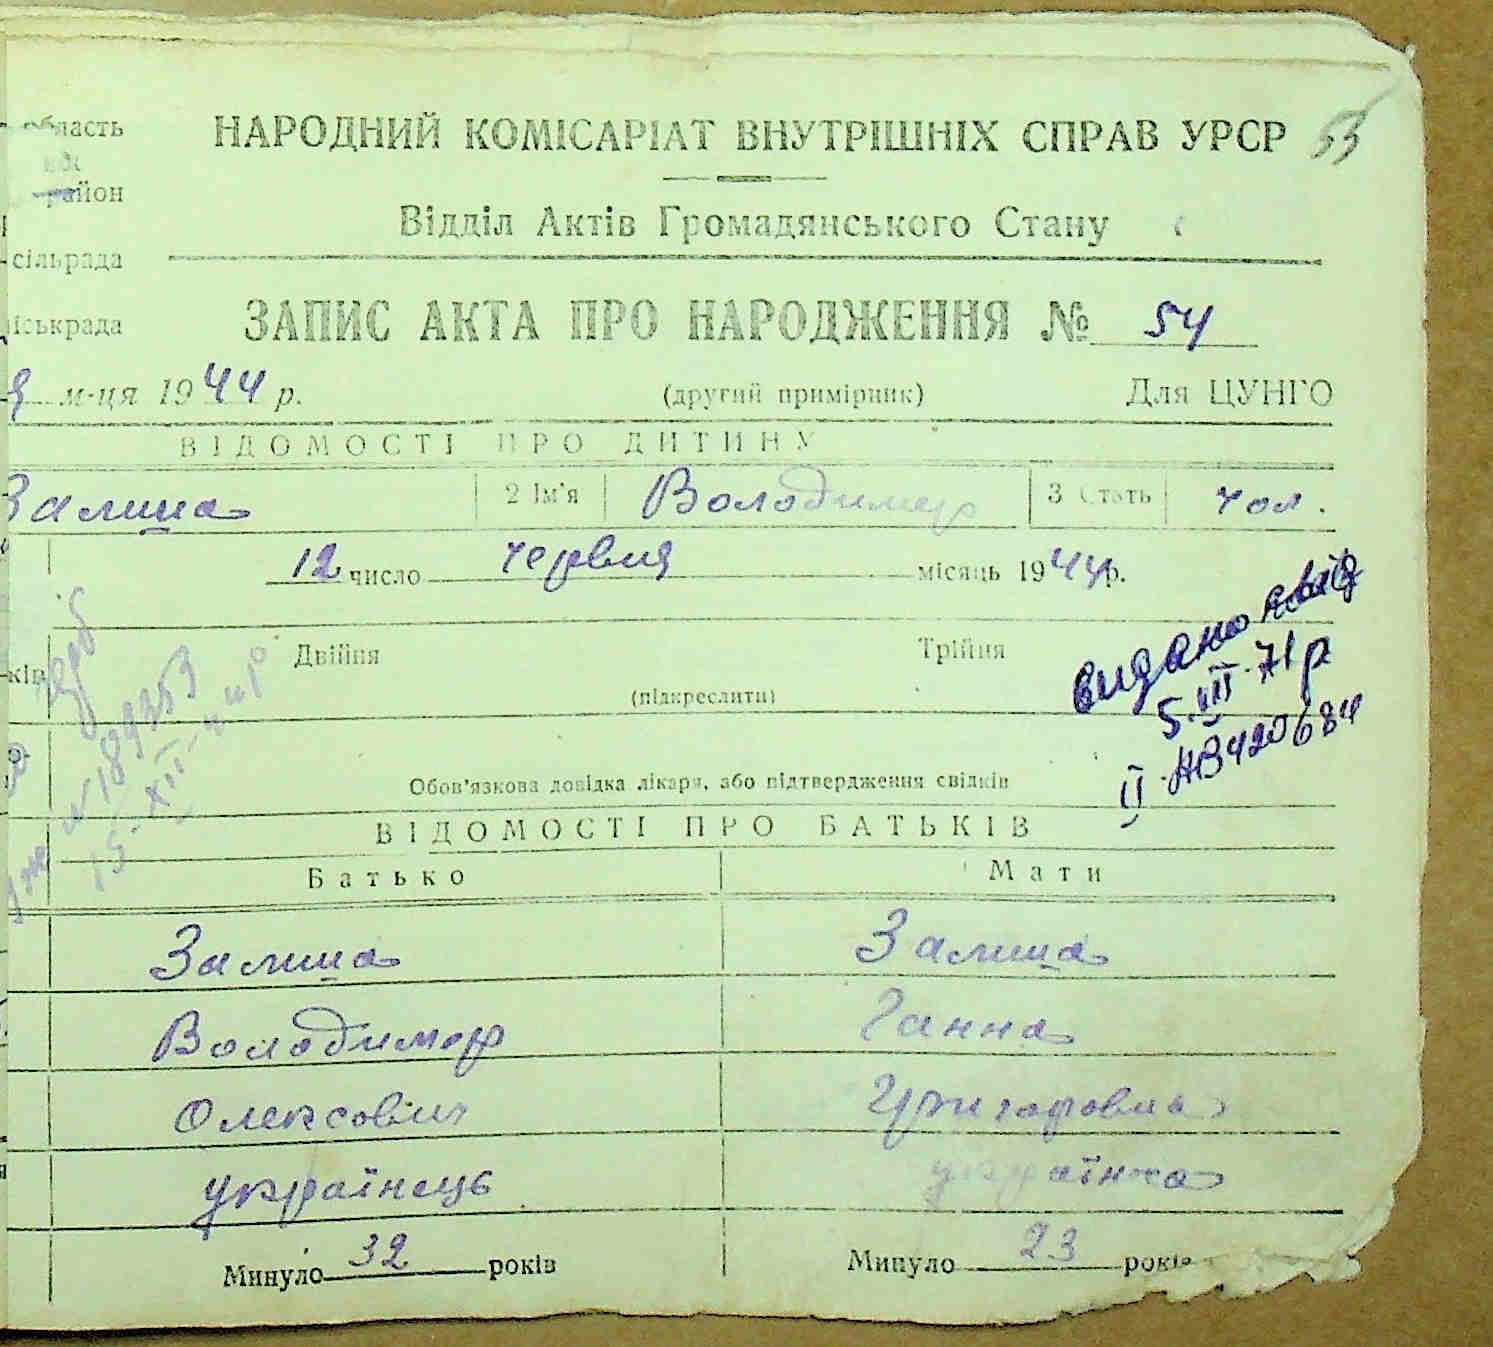 область
НАРОДНИЙ КОМІСАРІАТ ВНУТРІШНІХ СПРАВ УРСР 53
район
Відділ Актів Громадянського Стану
сільрада
ЗАПИС АКТА ПРО НАРОДЖЕННЯ № 54
міськрада
м-ця 1944 р. (другий примірник) Для ЦУНГО
ВІДОМОСТІ ПРО ДИТИНУ
Залиша 2 Ім'я Володимер 3 Стать чол.
12 число червня місяць 1944 р.
Двійня Трійня
(підкреслити)
видано
5. 71р
II-НВ 420684
№ 189353
15-XII-
Обов'язкова довідка лікаря, або підтвердження свідків
ВІДОМОСТІ ПРО БАТЬКІВ
Батько Мати
Залиша Залиша
Володимер Ганна
Олексовіч Григоровна
українець українка
Минуло 32 років Минуло 23 років